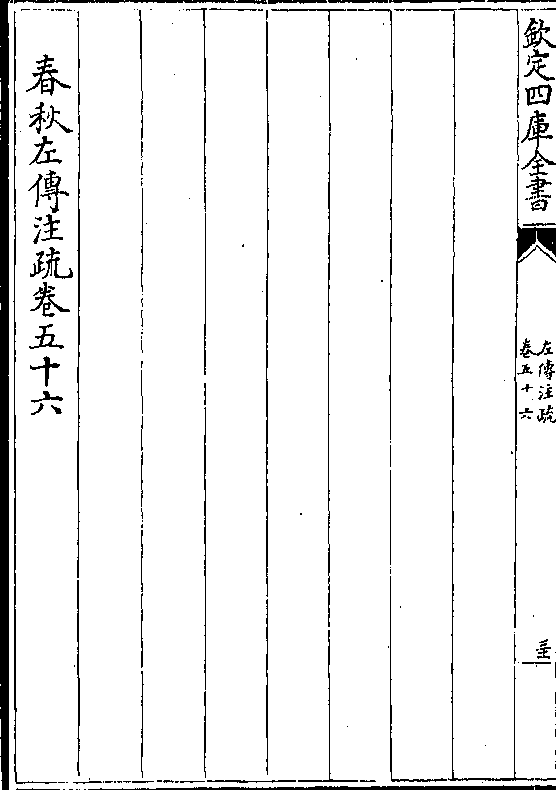 欽定四庫全書
左傳注疏
卷五十六
春秋左傳注疏卷五十六